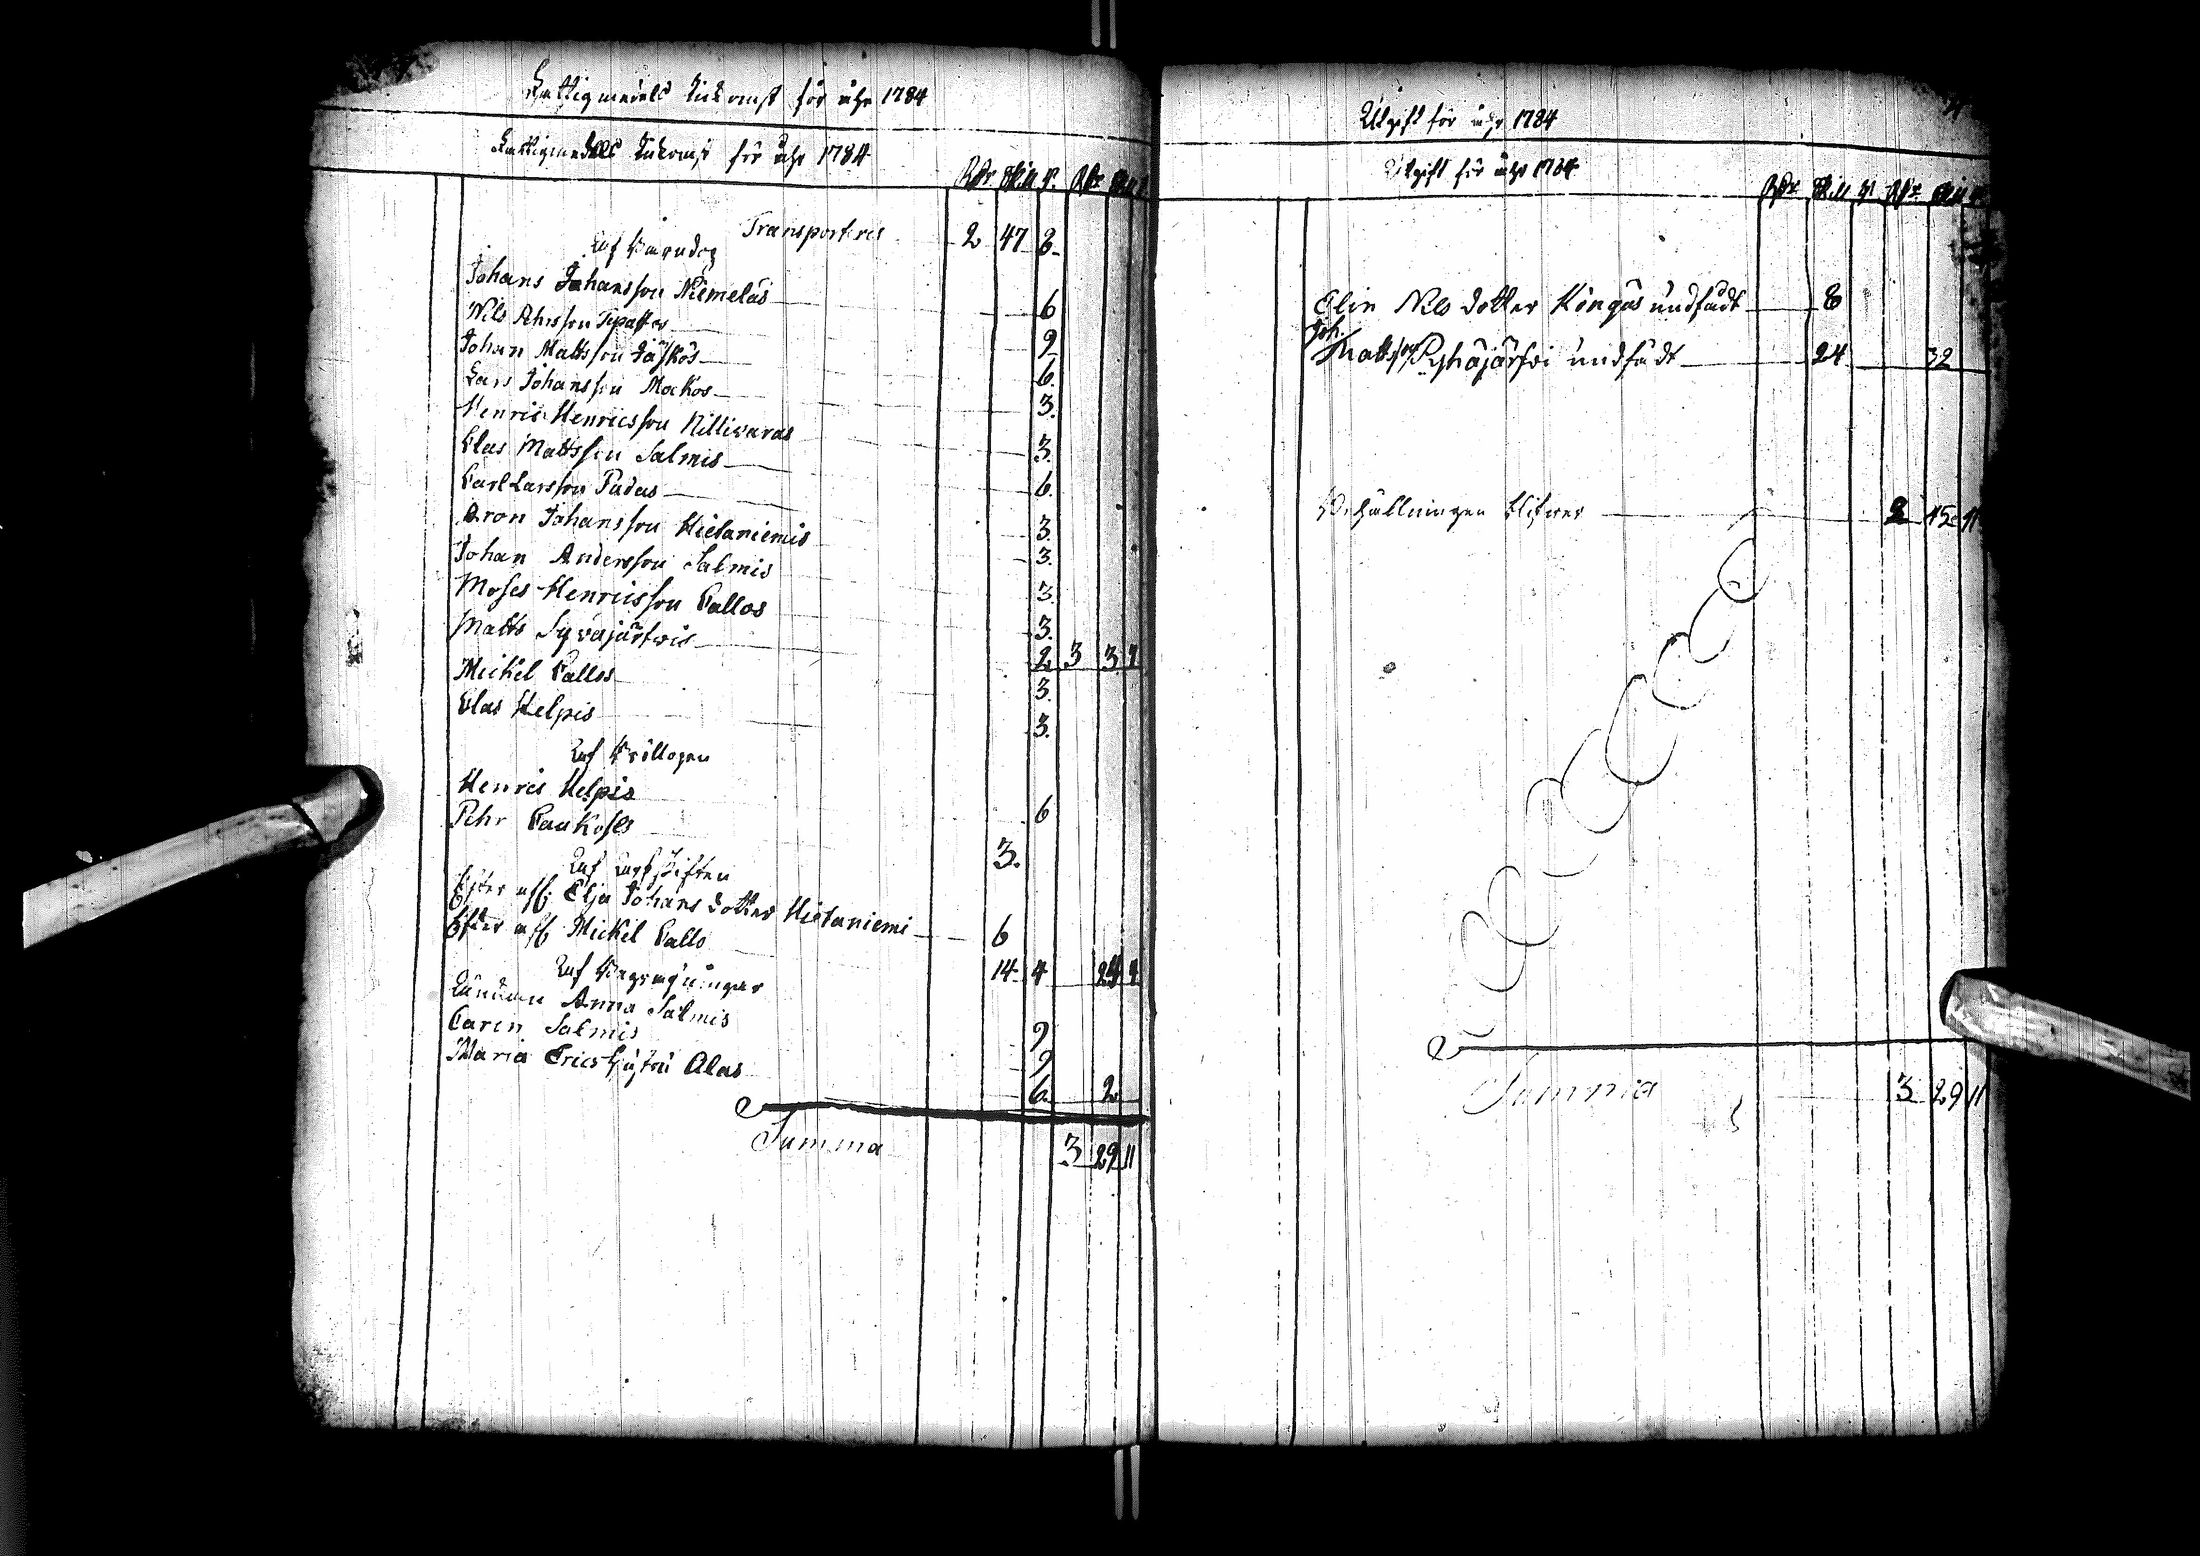 Fattigmedels Inkomst för åhr 1784
Fattigmedels Inkomst för åhr 1784
Rdr Skill r. Rdr Skill
Transporteres 2 47 8
Johans Johansson Niemeläs 6
Nils Persson 9
Johan Mattsson Jäskös 6
Lars Johansson Mackos 3.
Henric Henricsson Killivaras 3.
Clas Mattsson Salmis 6.
Carl Larsson Pudas 3.
Aron Johansson Hietaniemis 3.
Johan Andersson Salmis 3.
Moses Henricsson Pallos 3.
Matts Syväjärfwis 2 3 3 7
Mickel Pallos 3.
Clas Helpis 3.
Af Bröllopen
Henric Helpis 6
Pehr Pankoses 3.
Efter afl. Elsa Johans dotter Hietaniemi 6
Efter afl. Mickel Pallo 14 4 24 4
Af Begrafningar
Anna Salmis 9
Carin Salmis 9
Maria Erics hustru Alas 6 2
Summa 3 29 11
Utgift för åhr 1784
Utgift för åhr 1784
Rdr Skill r. Rdr Skill r.
Elin Nils dotter Kingäs undfådt 8
Joh.
Mattss. Pyhäjärfwi undfådt 24 32
Behållningen blifwer 2 45 11
Summa 3 29 11